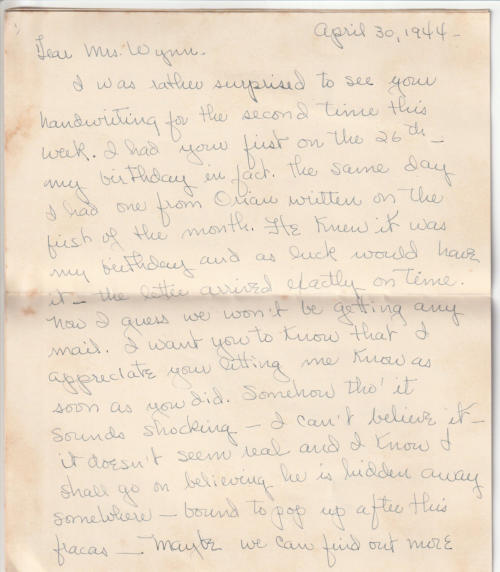 April 30, 1944 -
Dear Mrs. Wynn.
I was rather surprised to see your
handwriting for the second time this
week. I had your first on the 26th -
my birthday in fact. The same day
I had one from Orian written on the
first of the month. He knew it was
my birthday and as luck would have
it - the letter arrived exactly on time.
Now I guess we won't be getting any
mail. I want you to know that I
appreciate your letting me know as
soon as you did. Somehow tho' it
sounds shocking - I can't believe it -
it doesn't seem real and I know I
shall go on believing he is hidden away
somewhere - bound to pop up after this
fracas - Maybe we can find out more